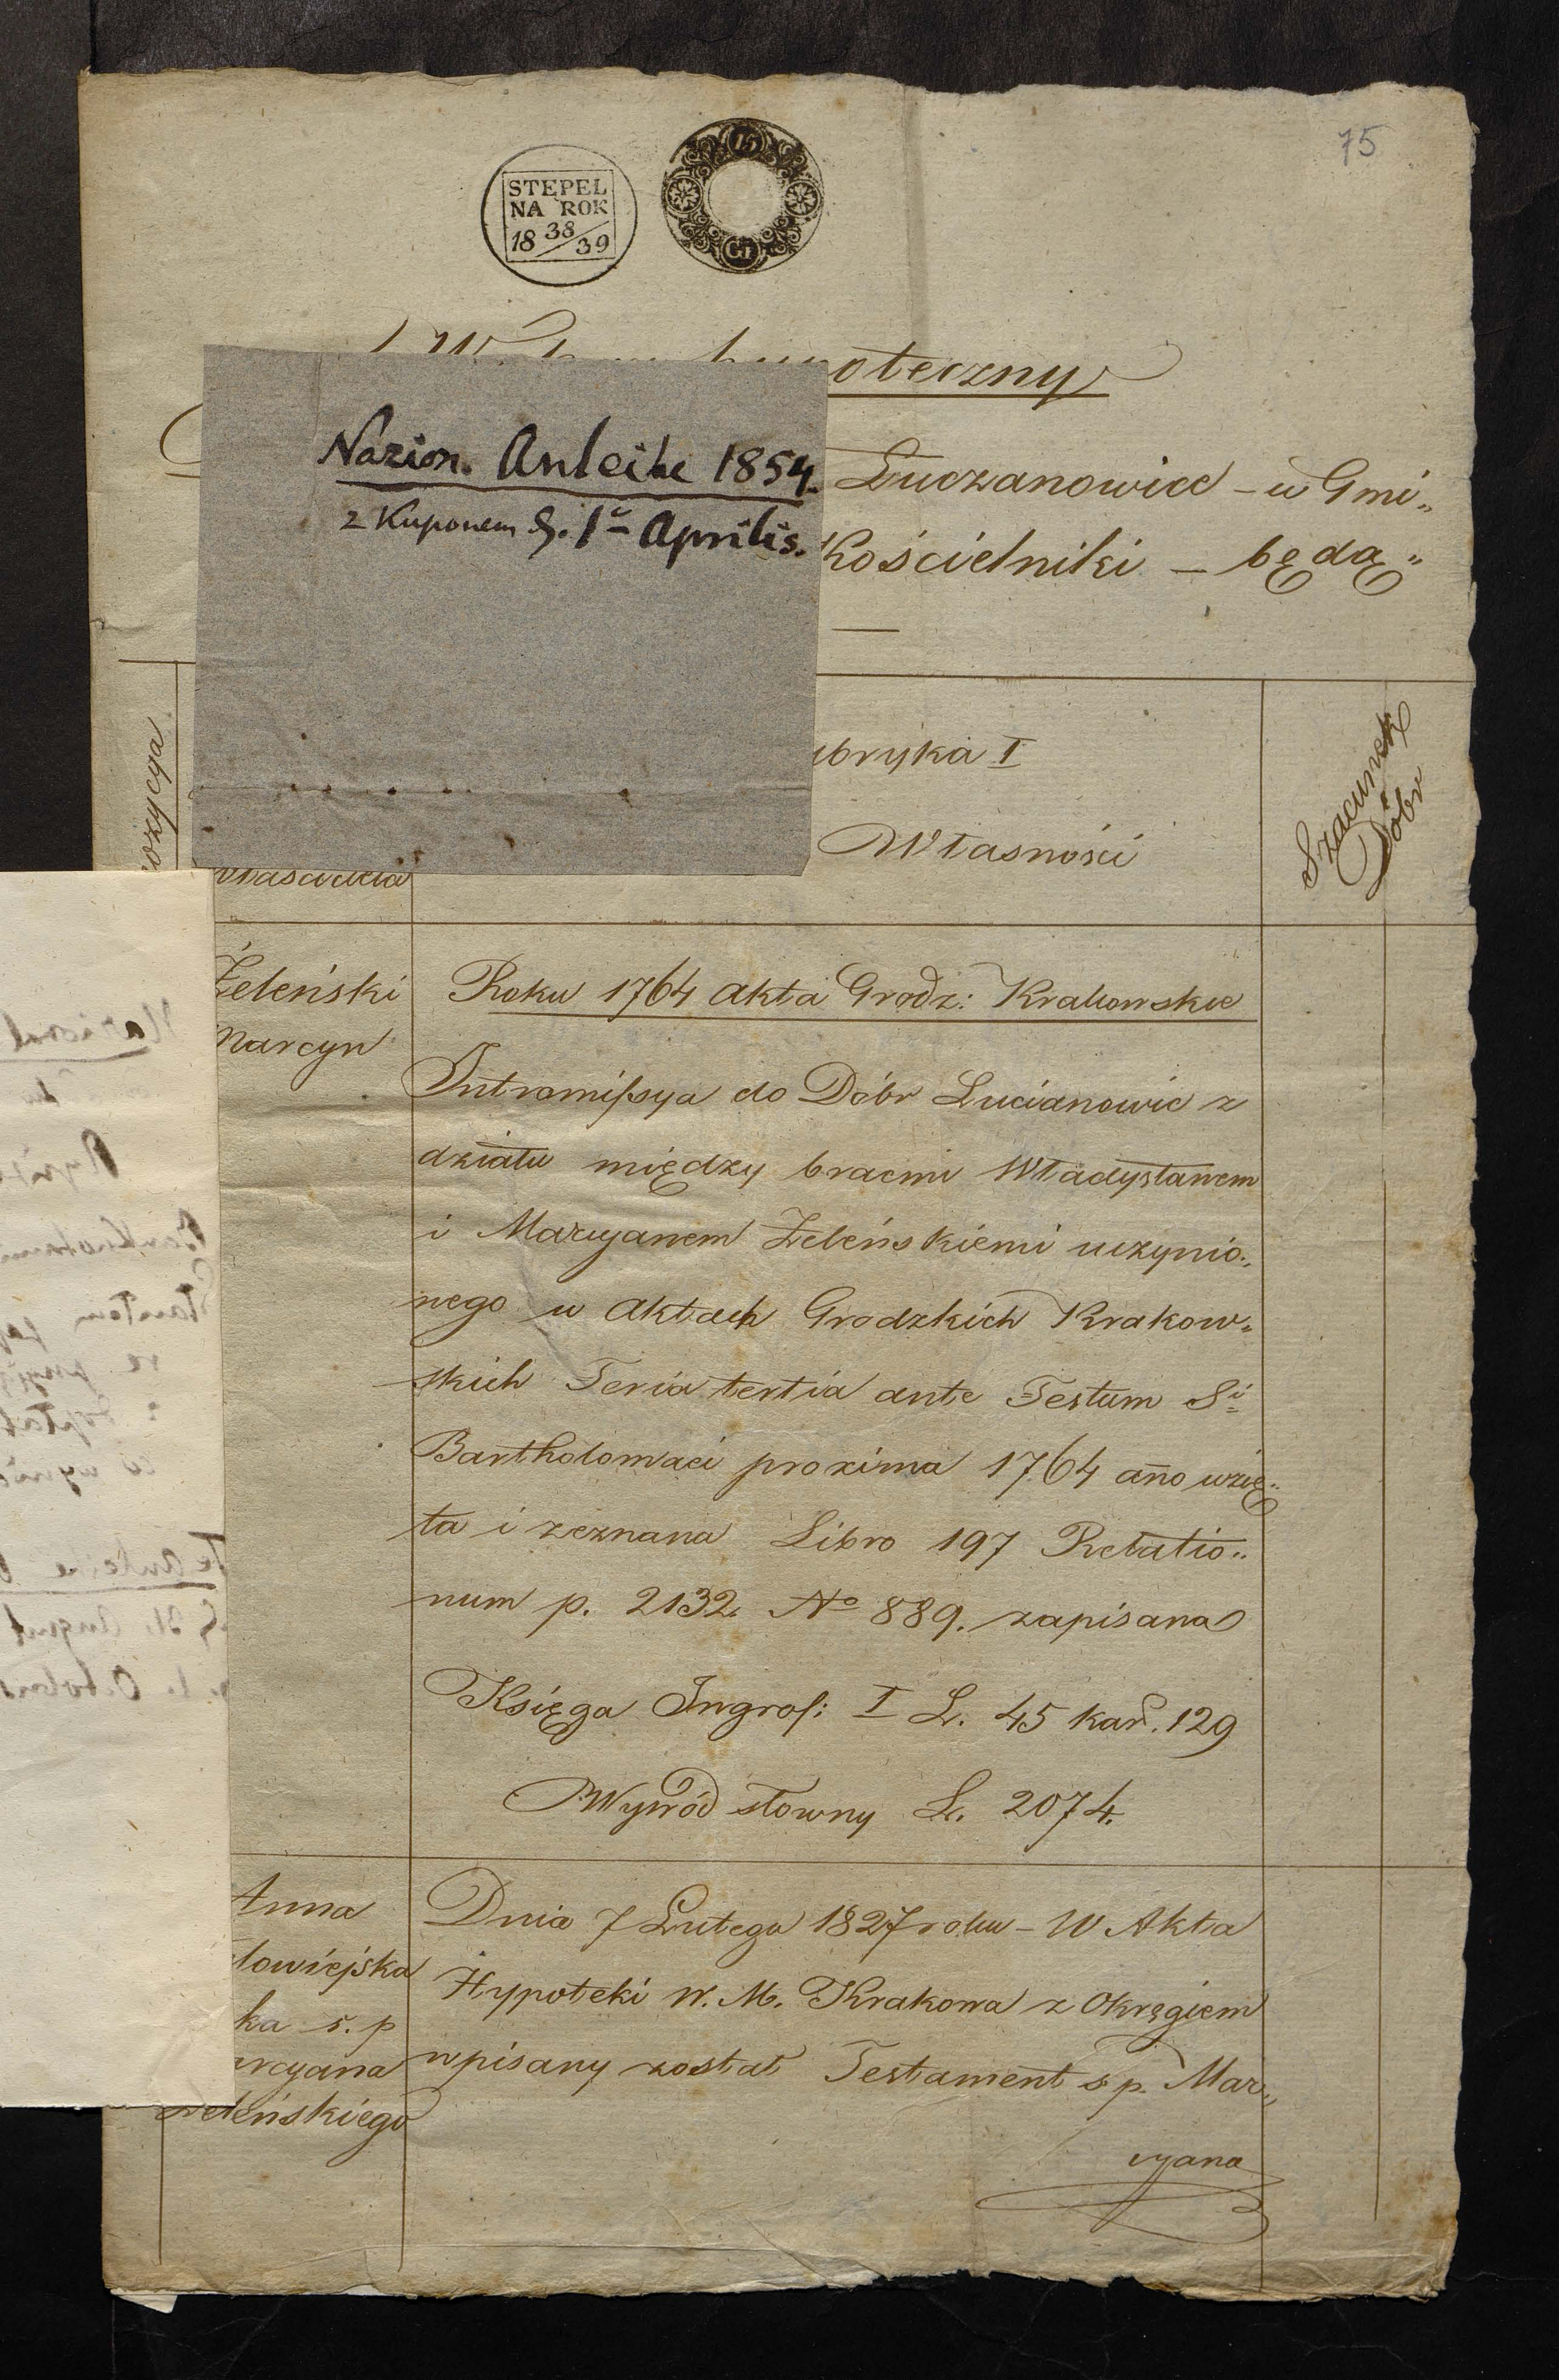 75
STĘPEL
NA ROK
18 38/39
15
Gr
hypoteczny
Nazion. Anleihe 1854.
z Kuponem d. 1ª Aprilis.
Łuczanowice – w Gmi„
Kościelniki – będą„
ozycya
ubryka I
Własności
Szacunek
Dóbr
właściciela
Żeleński
Marcyn
Roku 1764 Akta Grodz: Krakowskie
Intromissya do Dóbr Lucianowic z
działu między bracmi Władysławem
i Marcyanem Żeleńskiemi uczynio„
nego w Aktach Grodzkich Krakow„
skich Feria tertia ante Festum Sⁱ
Bartholomaei proxima 1764 año wzię„
ta i zeznana Libro 197 Relatio„
num p. 2132 Nº 889. zapisana
Księga Ingros: I L. 45 kar. 129
Wywód słowny L. 2074.
Anna
łowiejska
ka ś. p
arcyana
Żeleńskiego
Dnia 7 Lutego 1827 roku – W Akta
Hypoteki W. M. Krakowa z Okręgiem
wpisany został Testament s p. Mar„
cyana